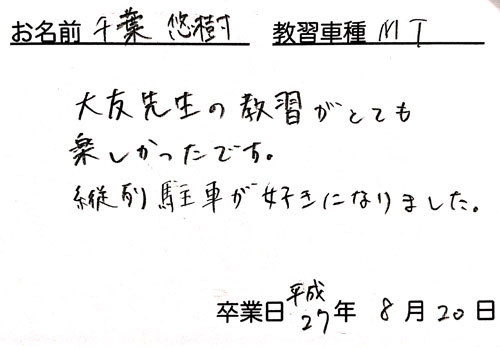 お名前 千葉 悠樹 教習車種 MT
大友先生の教習がとても
楽しかったです。
縦列駐車が好きになりました。
卒業日 平成27年 8月20日